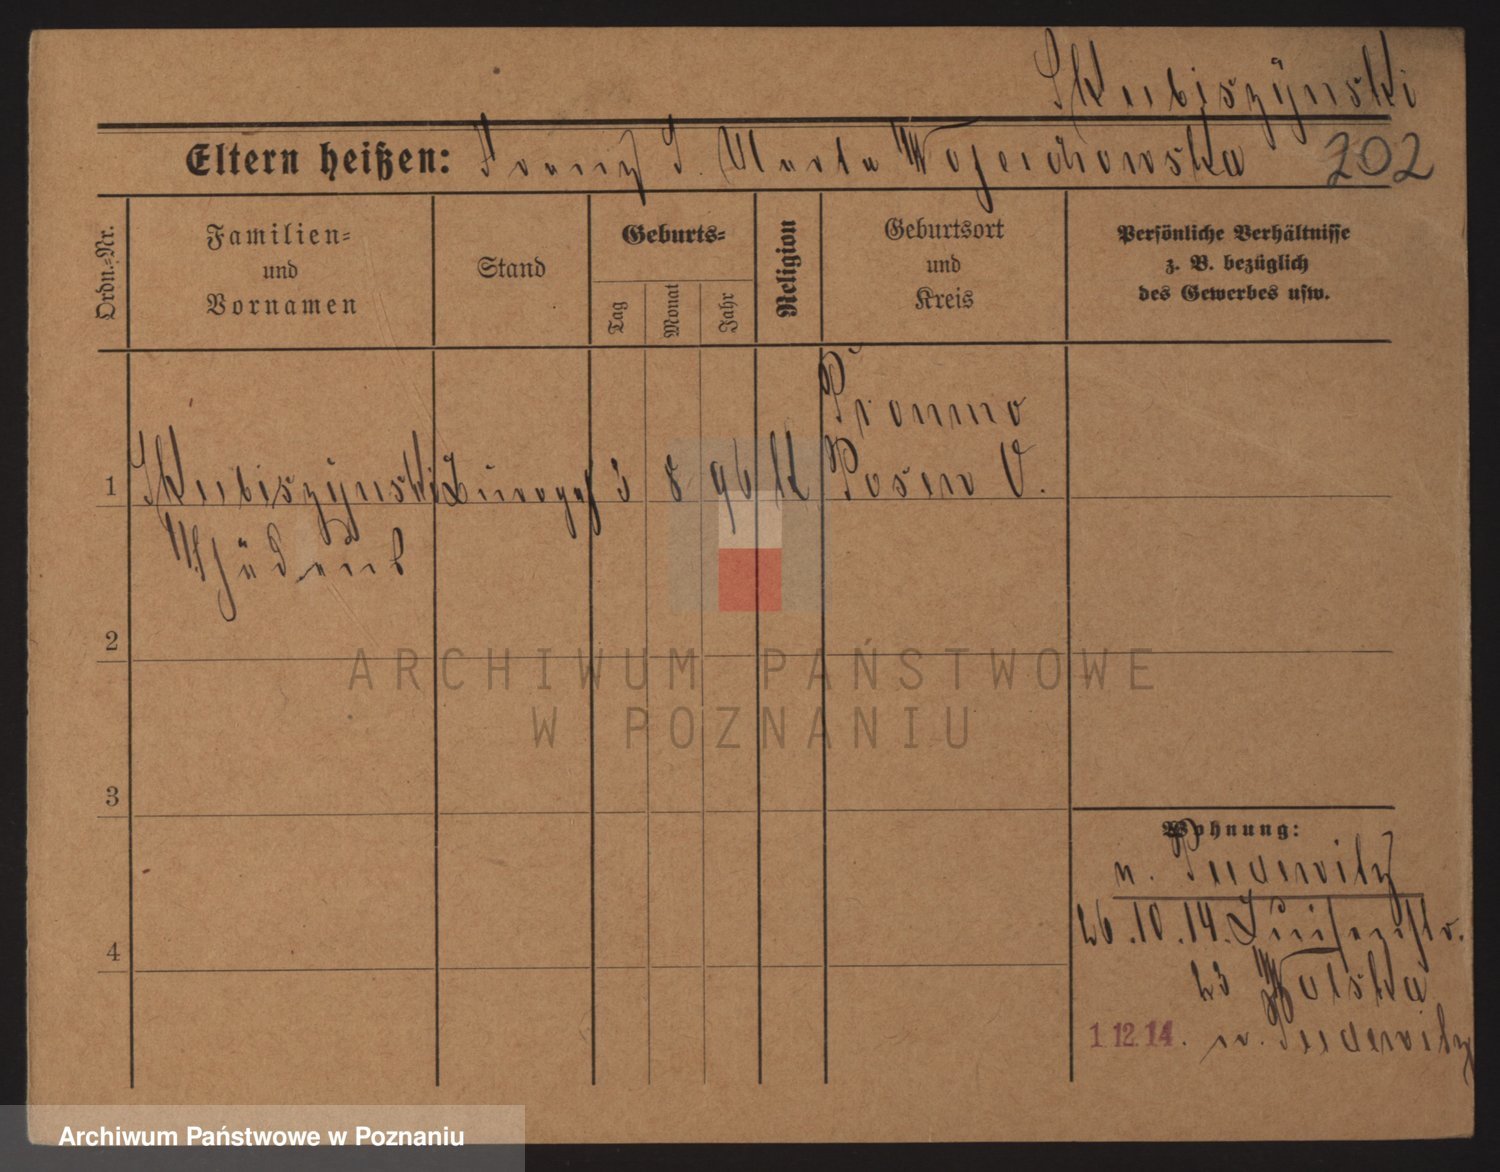 Skubiszynski
Eltern heißen: Franz S. Marta Wojciechowska 202
Ordn.=Nr.
Familien=
und
Vornamen
Stand
Geburts=
Tag
Monat
Jahr
Religion
Geburtsort
und
Kreis
Persönliche Verhältnisse
z. B. bezüglich
des Gewerbes usw.
Promno
1 Skubiszynski 3 8 96 k Posen O.
2
3
4
Wohnung:
n. Pudewitz
26.10.14. Luisenstr.
23 Wolska
1.12.14. n. Pudewitz
ARCHIWUM PAŃSTWOWE
W POZNANIU
Archiwum Państwowe w Poznaniu